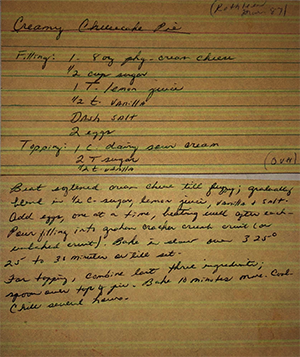 Creamy Cheesecake Pie
Filling: 1- 8 oz pkg. cream cheese
1/2 cup sugar
1 T. lemon juice
1/2 t. vanilla
Dash salt
2 eggs
Topping: 1 C. dairy sour cream
2 T sugar
1/2 t. vanilla
(over)
Beat softened cream cheese till fluffy; gradually
blend in 1/2 C. sugar, lemon juice, vanilla & salt.
Add eggs, one at a time, beating well after each.
Pour filling into graham cracker crumb crust (or
unbaked crust). Bake in slow oven 325°
25 to 30 minutes or till set.
For topping, combine last three ingredients;
spoon over top of pie. Bake 10 minutes more. Cool.
Chill several hours.